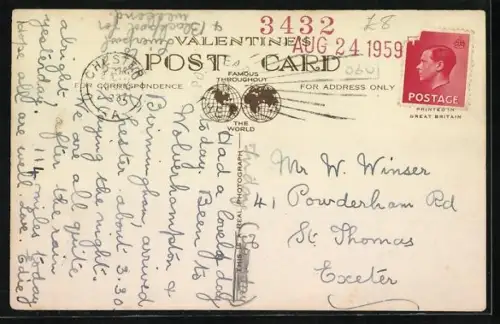 3432
AUG 24 1959
£8
VALENTINE'S
POST CARD
FAMOUS
THROUGHOUT
THE
WORLD
FOR CORRESPONDENCE
FOR ADDRESS ONLY
POSTAGE
PRINTED IN
GREAT BRITAIN
CHESTER
Had a lovely day
today. Been to
Wolverhampton &
Birmingham, arrived
Chester about 3.30.
staying the night.
We are all quite
alright after the rain
yesterday. 114 miles today
Hope all are well. Love. Edie
& Blackpool for
weekend.
Mr W. Winser
41 Powderham Rd
St. Thomas
Exeter